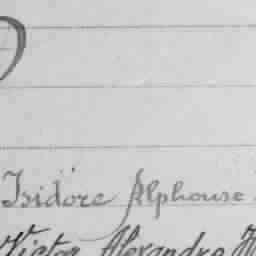 Isidore Alphonse
Victor Alexandre